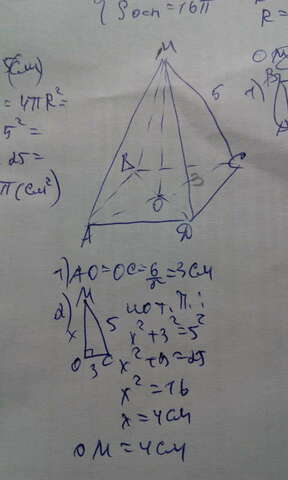 Sосн = 16π
R =
(см)
= 4πR² =
5² =
25 =
π(см²)
M
5
B
C
3
O
A
D
1) AO = OC = 6/2 = 3 см
2) M
x
5
O
3
C
по т. П.:
x² + 3² = 5²
x² + 9 = 25
x² = 16
x = 4 см
OM = 4 см